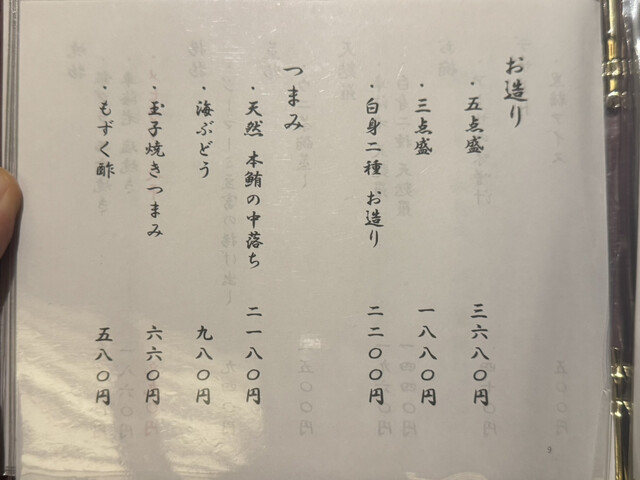 お造り
・五点盛 三六八〇円
・三点盛 一八八〇円
・白身二種 お造り 二二〇〇円
つまみ
・天然 本鮪の中落ち 二一八〇円
・海ぶどう 九八〇円
・玉子焼きつまみ 六六〇円
・もずく酢 五八〇円
9